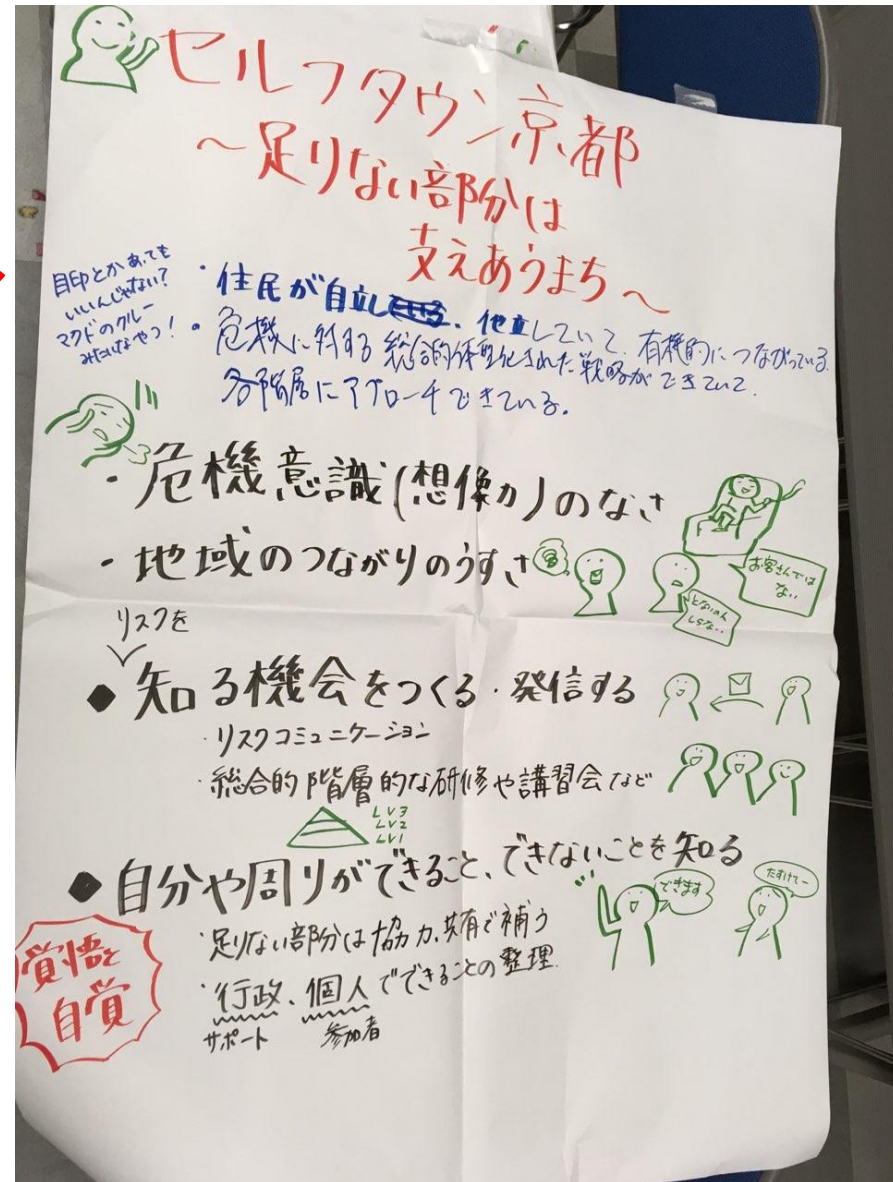 セルフタウン京都
〜足りない部分は
支えあうまち〜
目印とかあっても
いいんじゃない?
マクドのクルー
みたいなやつ!
・住民が自立し、他立していて、有機的につながっている.
・危機に対する総合的体型化された戦略ができていて、
各階層にアプローチできている.
・危機意識(想像力)のなさ
・地域のつながりのうすさ
お客さんでは
ない..
となりのん
しらない..
リスクを
◆知る機会をつくる・発信する
・リスクコミュニケーション
・総合的階層的な研修や講習会など
LV3
LV2
LV1
◆自分や周りができること、できないことを知る
できます
たすけてー
・足りない部分は協力、共有で補う
・行政、個人でできることの整理.
サポート 参加者
覚悟と
自覚